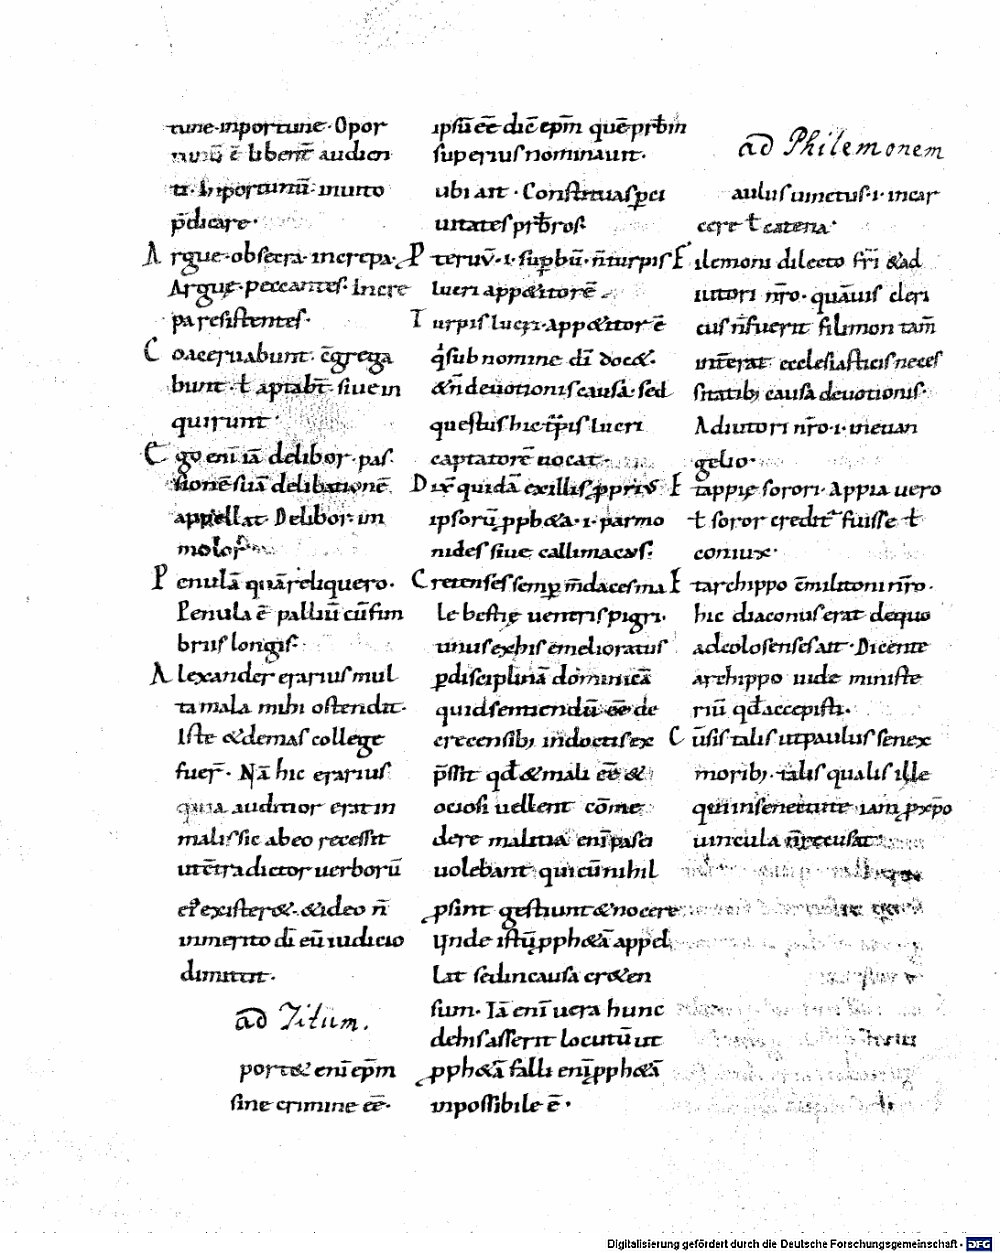 tune · inportune · Opor
tunū ē libenť audien
ti · Inportunū · inuito
p̄dicare ·
Argue · obsecra · increpa ·
Argue · peccantes · Incre
pa resistentes ·
Coaceruabunt · c̄grega
bunt · ł aptabt̄ · siue in
quirunt ·
Ego eni͞ iā delibor · pas
sionē suā delibationē
appellat · Delibor · im
molor
Penulā quā reliquero ·
Penula ē palliū cū fim
briis longis ·
Alexander erarius mul
ta mala mihi ostendit ·
Iste & demas college
fuer̄ · Nā hic erarius
quia auditor erat in
malis sic abeo recessit
ut c̄tradictor uerborū
ei existeret · & ideo n̄
inmerito dī eū iudicio
dimittit ·
ad Titum.
port& eni͞ ep̄m
sine crimine ēē ·
ipsū ēē dic̄ ep̄m quē prb̄m
superius nominauit ·
ubi ait · Constituas p̨ ci
uitates prb̄ros ·
Pteruū · i · supbū · n̄ turpis
lucri app&itorē
Turpis lucri · app&itor ē
q̇ sub nomine dī doc& ·
& n̄ deuotionis causā · sed
questus hic tēp̄is lucri
captatorē uocat ·
Dix̄ quidā ex illis p̨prius
ipsorū p̨ph&a · i · parme
nides siue callimacus ·
Cretenses semp̨ m̄daces ma
le bestię uentris pigri ·
unus ex his emelioratus
p̨ disciplinā dominicā
quid sentiendū ēē de
cretensib; indoctis ex
p̄ssit qd̄ & mali ēē &
ociosi uellent cōme
dere malitia eni͞ pasci
uolebant qui cū nihil
p̨sint gestiunt & nocere
Unde istū p̨ph&ā appel
lat sed in causa cr&en
sium · Iā eni͞ uera hunc
de his asserit locutū ut
p̨ph&ā falli eni͞ p̨ph&ā
inpossibile ē ·
ad Philemonem
aulus uinctus · i · in car
cere ł catena ·
Filemoni dilecto fr̄i & ad
iutori nr̄o · quāuis cleri
cus n̄ fuerit filimon tam̄
int̄erat ecclesiasticis neces
sitatib; causā deuotionis ·
Adiutori nr̄o · i · in euan
gelio ·
Et appię sorori · Appia uero
ł soror credit̄ fuisse ł
coniux ·
Et archippo c̄militoni nr̄o ·
hic diaconus erat de quo
ad colosenses ait · Dicente
archippo uide ministe
riū qd̄ accepisti ·
Cū sis talis ut paulus senex
morib; · talis qualis ille
qui in senectute iam p̨ xp̄o
uincula n̄ recusat
Digitalisierung gefördert durch die Deutsche Forschungsgemeinschaft - DFG